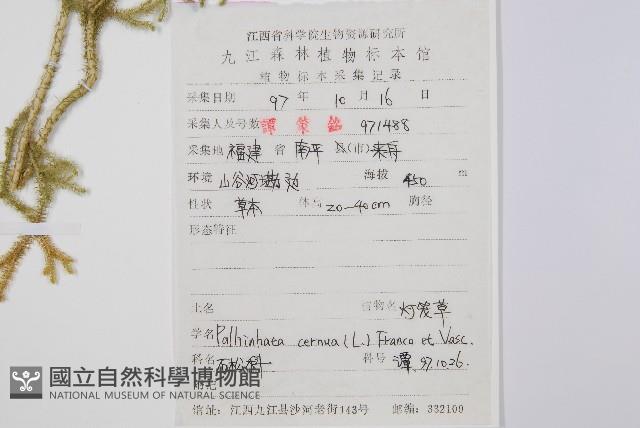 江西省科学院生物资源研究所
九江森林植物标本馆
植物标本采集记录
采集日期 97 年 10 月 16 日
采集人及号数 譚策銘 971488
采集地 福建 省 南平 县(市) 来舟
环境 山谷河 海拔 450 m
性状 草本 体高 20-40cm 胸径
形态特征
土名 植物名 灯笼草
学名 Palhinhaea cernua (L.) Franco et Vasc.
科名 石松科 科号 譚 97.10.26.
附记
馆址: 江西九江县沙河老街143号 邮编: 332100
國立自然科學博物館
NATIONAL MUSEUM OF NATURAL SCIENCE